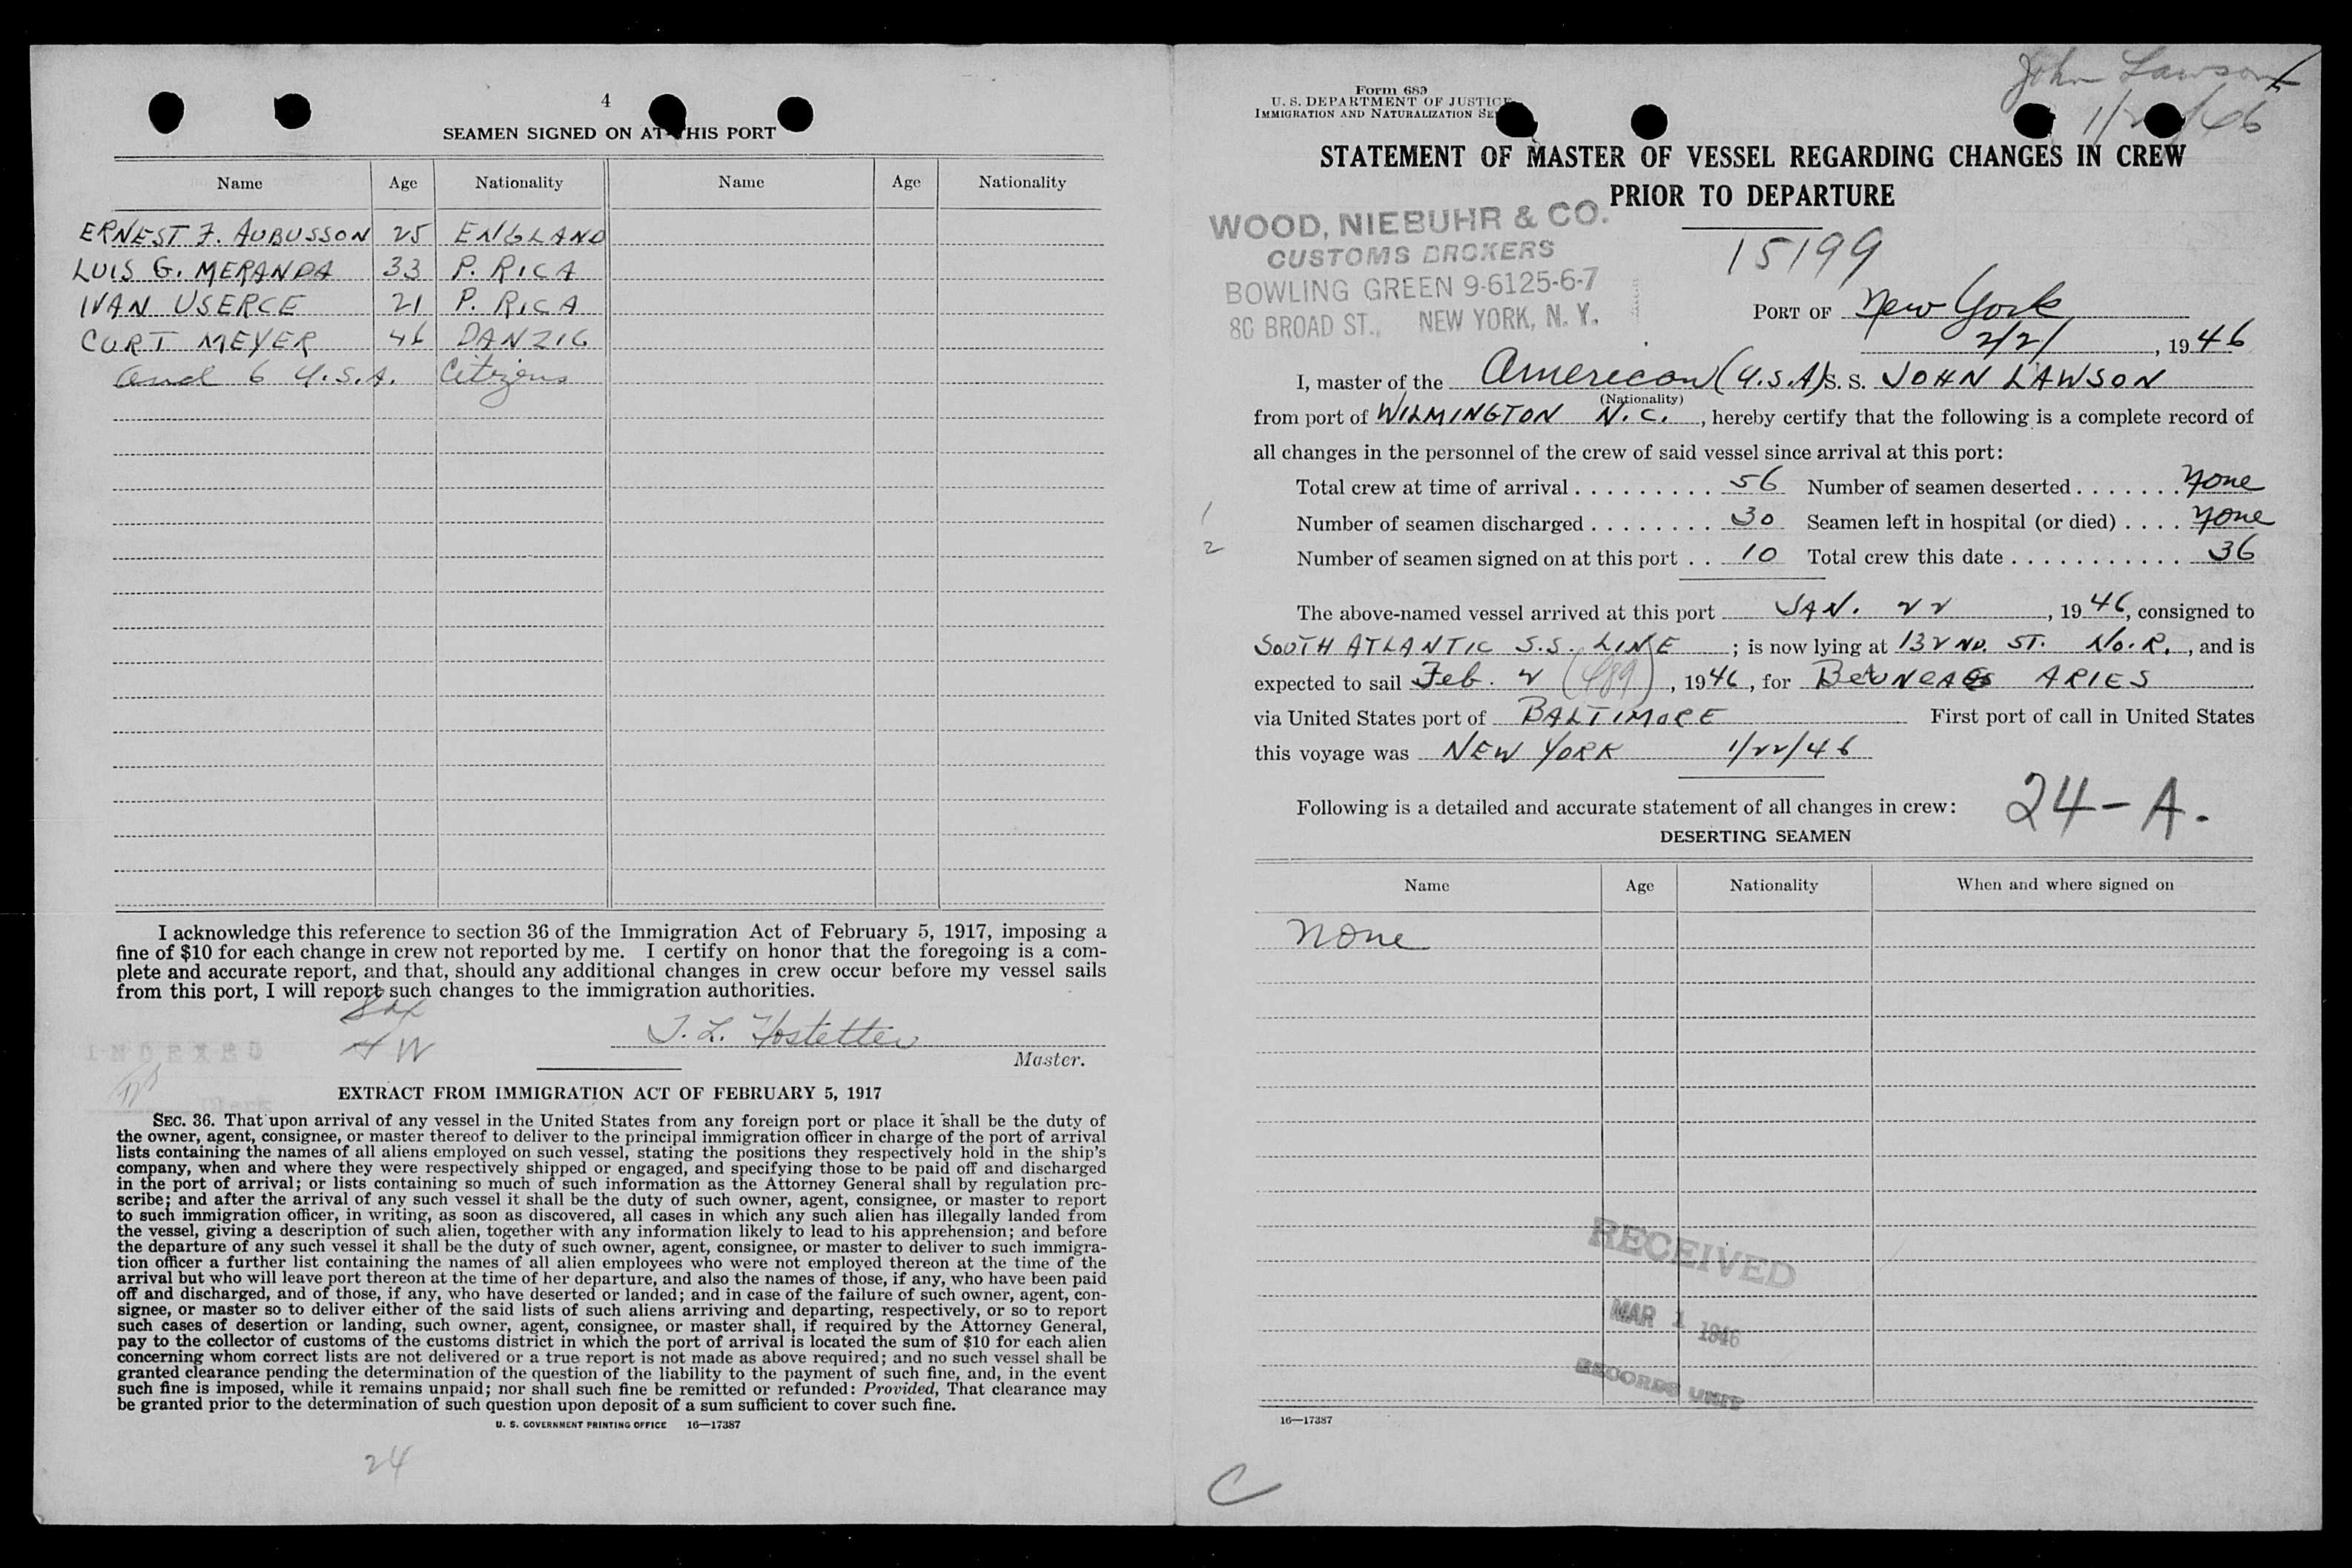 4
SEAMEN SIGNED ON AT THIS PORT
Name Age Nationality Name Age Nationality
ERNEST F. AUBUSSON 25 ENGLAND
LUIS G. MERANDA 33 P. RICA
IVAN USERCE 21 P. RICA
CURT MEYER 46 DANZIG
and 6 U.S.A. Citizens
I acknowledge this reference to section 36 of the Immigration Act of February 5, 1917, imposing a
fine of $10 for each change in crew not reported by me. I certify on honor that the foregoing is a com-
plete and accurate report, and that, should any additional changes in crew occur before my vessel sails
from this port, I will report such changes to the immigration authorities.
INDEXED
T. L. Hostetter
Master.
EXTRACT FROM IMMIGRATION ACT OF FEBRUARY 5, 1917
SEC. 36. That upon arrival of any vessel in the United States from any foreign port or place it shall be the duty of
the owner, agent, consignee, or master thereof to deliver to the principal immigration officer in charge of the port of arrival
lists containing the names of all aliens employed on such vessel, stating the positions they respectively hold in the ship's
company, when and where they were respectively shipped or engaged, and specifying those to be paid off and discharged
in the port of arrival; or lists containing so much of such information as the Attorney General shall by regulation pre-
scribe; and after the arrival of any such vessel it shall be the duty of such owner, agent, consignee, or master to report
to such immigration officer, in writing, as soon as discovered, all cases in which any such alien has illegally landed from
the vessel, giving a description of such alien, together with any information likely to lead to his apprehension; and before
the departure of any such vessel it shall be the duty of such owner, agent, consignee, or master to deliver to such immigra-
tion officer a further list containing the names of all alien employees who were not employed thereon at the time of the
arrival but who will leave port thereon at the time of her departure, and also the names of those, if any, who have been paid
off and discharged, and of those, if any, who have deserted or landed; and in case of the failure of such owner, agent, con-
signee, or master so to deliver either of the said lists of such aliens arriving and departing, respectively, or so to report
such cases of desertion or landing, such owner, agent, consignee, or master shall, if required by the Attorney General,
pay to the collector of customs of the customs district in which the port of arrival is located the sum of $10 for each alien
concerning whom correct lists are not delivered or a true report is not made as above required; and no such vessel shall be
granted clearance pending the determination of the question of the liability to the payment of such fine, and, in the event
such fine is imposed, while it remains unpaid; nor shall such fine be remitted or refunded: Provided, That clearance may
be granted prior to the determination of such question upon deposit of a sum sufficient to cover such fine.
U. S. GOVERNMENT PRINTING OFFICE 16—17387
24
John Lawson
Form 689
U. S. DEPARTMENT OF JUSTICE
IMMIGRATION AND NATURALIZATION
STATEMENT OF MASTER OF VESSEL REGARDING CHANGES IN CREW
PRIOR TO DEPARTURE
WOOD, NIEBUHR & CO.
CUSTOMS BROKERS
BOWLING GREEN 9-6125-6-7
80 BROAD ST., NEW YORK, N. Y.
15199
PORT OF New York
2/2/, 1946
I, master of the American (U.S.A) S. S. JOHN LAWSON
(Nationality)
from port of WILMINGTON N.C., hereby certify that the following is a complete record of
all changes in the personnel of the crew of said vessel since arrival at this port:
Total crew at time of arrival . . . . . . . . . 56 Number of seamen deserted . . . . . . . None
1
Number of seamen discharged . . . . . . . . 30 Seamen left in hospital (or died) . . . . None
2
Number of seamen signed on at this port . . 10 Total crew this date . . . . . . . . . . . . 36
The above-named vessel arrived at this port JAN. 22, 1946, consigned to
SOUTH ATLANTIC S.S. LINE; is now lying at 132 ND. ST. No. R., and is
expected to sail Feb. 2 (489), 1946, for ARIES
via United States port of BALTIMORE First port of call in United States
this voyage was NEW YORK 1/22/46
Following is a detailed and accurate statement of all changes in crew: 24-A.
DESERTING SEAMEN
Name Age Nationality When and where signed on
None
RECEIVED
MAR 1 1946
RECORDS UNIT
16—17387
C